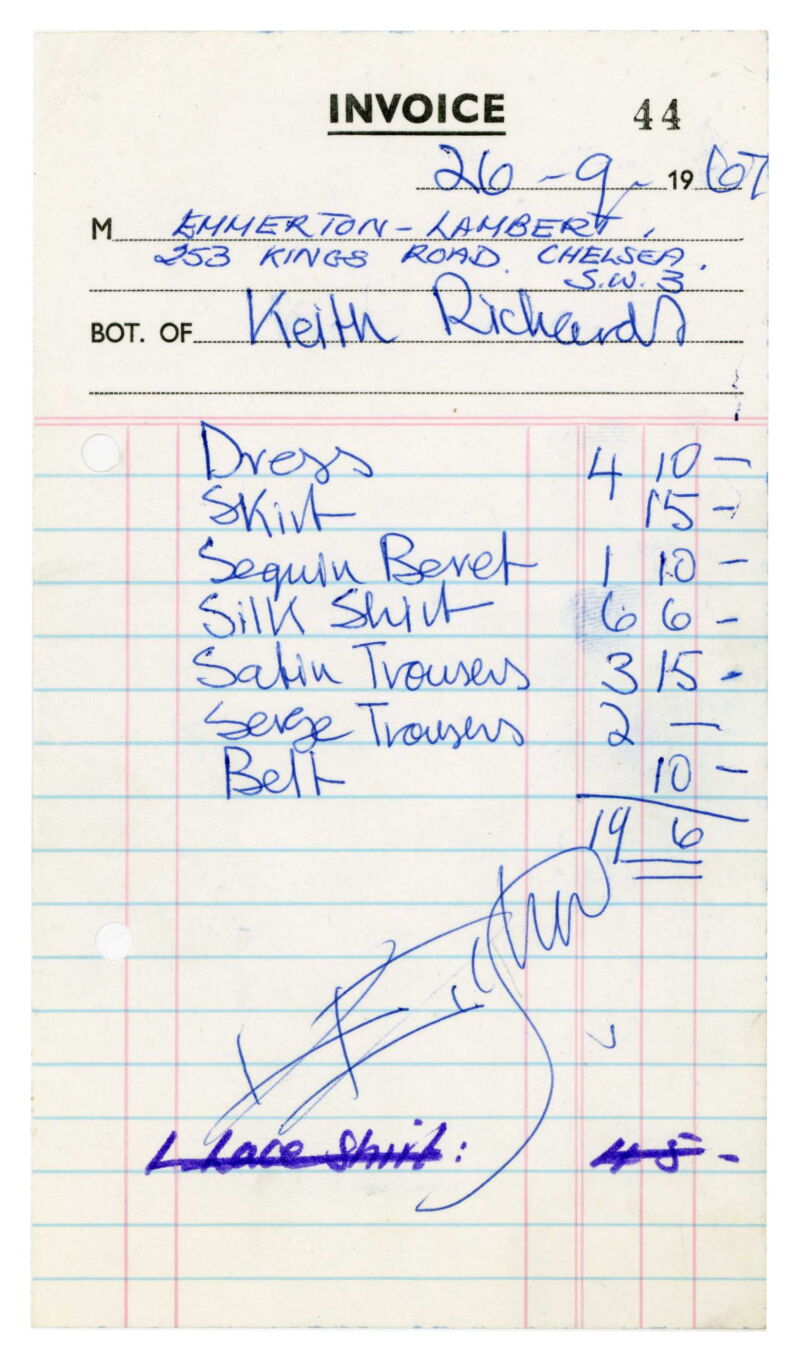 INVOICE 44
26 - 9 - 1967
M EMMERTON - LAMBERT,
253 KINGS ROAD. CHELSEA.
S.W.3
BOT. OF Keith Richards
Dress 4 10 -
Skirt 15 -
Sequin Beret 1 10 -
Silk Shirt 6 6 -
Satin Trousers 3 15 -
Serge Trousers 2 -
Belt 10 -
19 6
1 Lace Shirt: 4 5 -